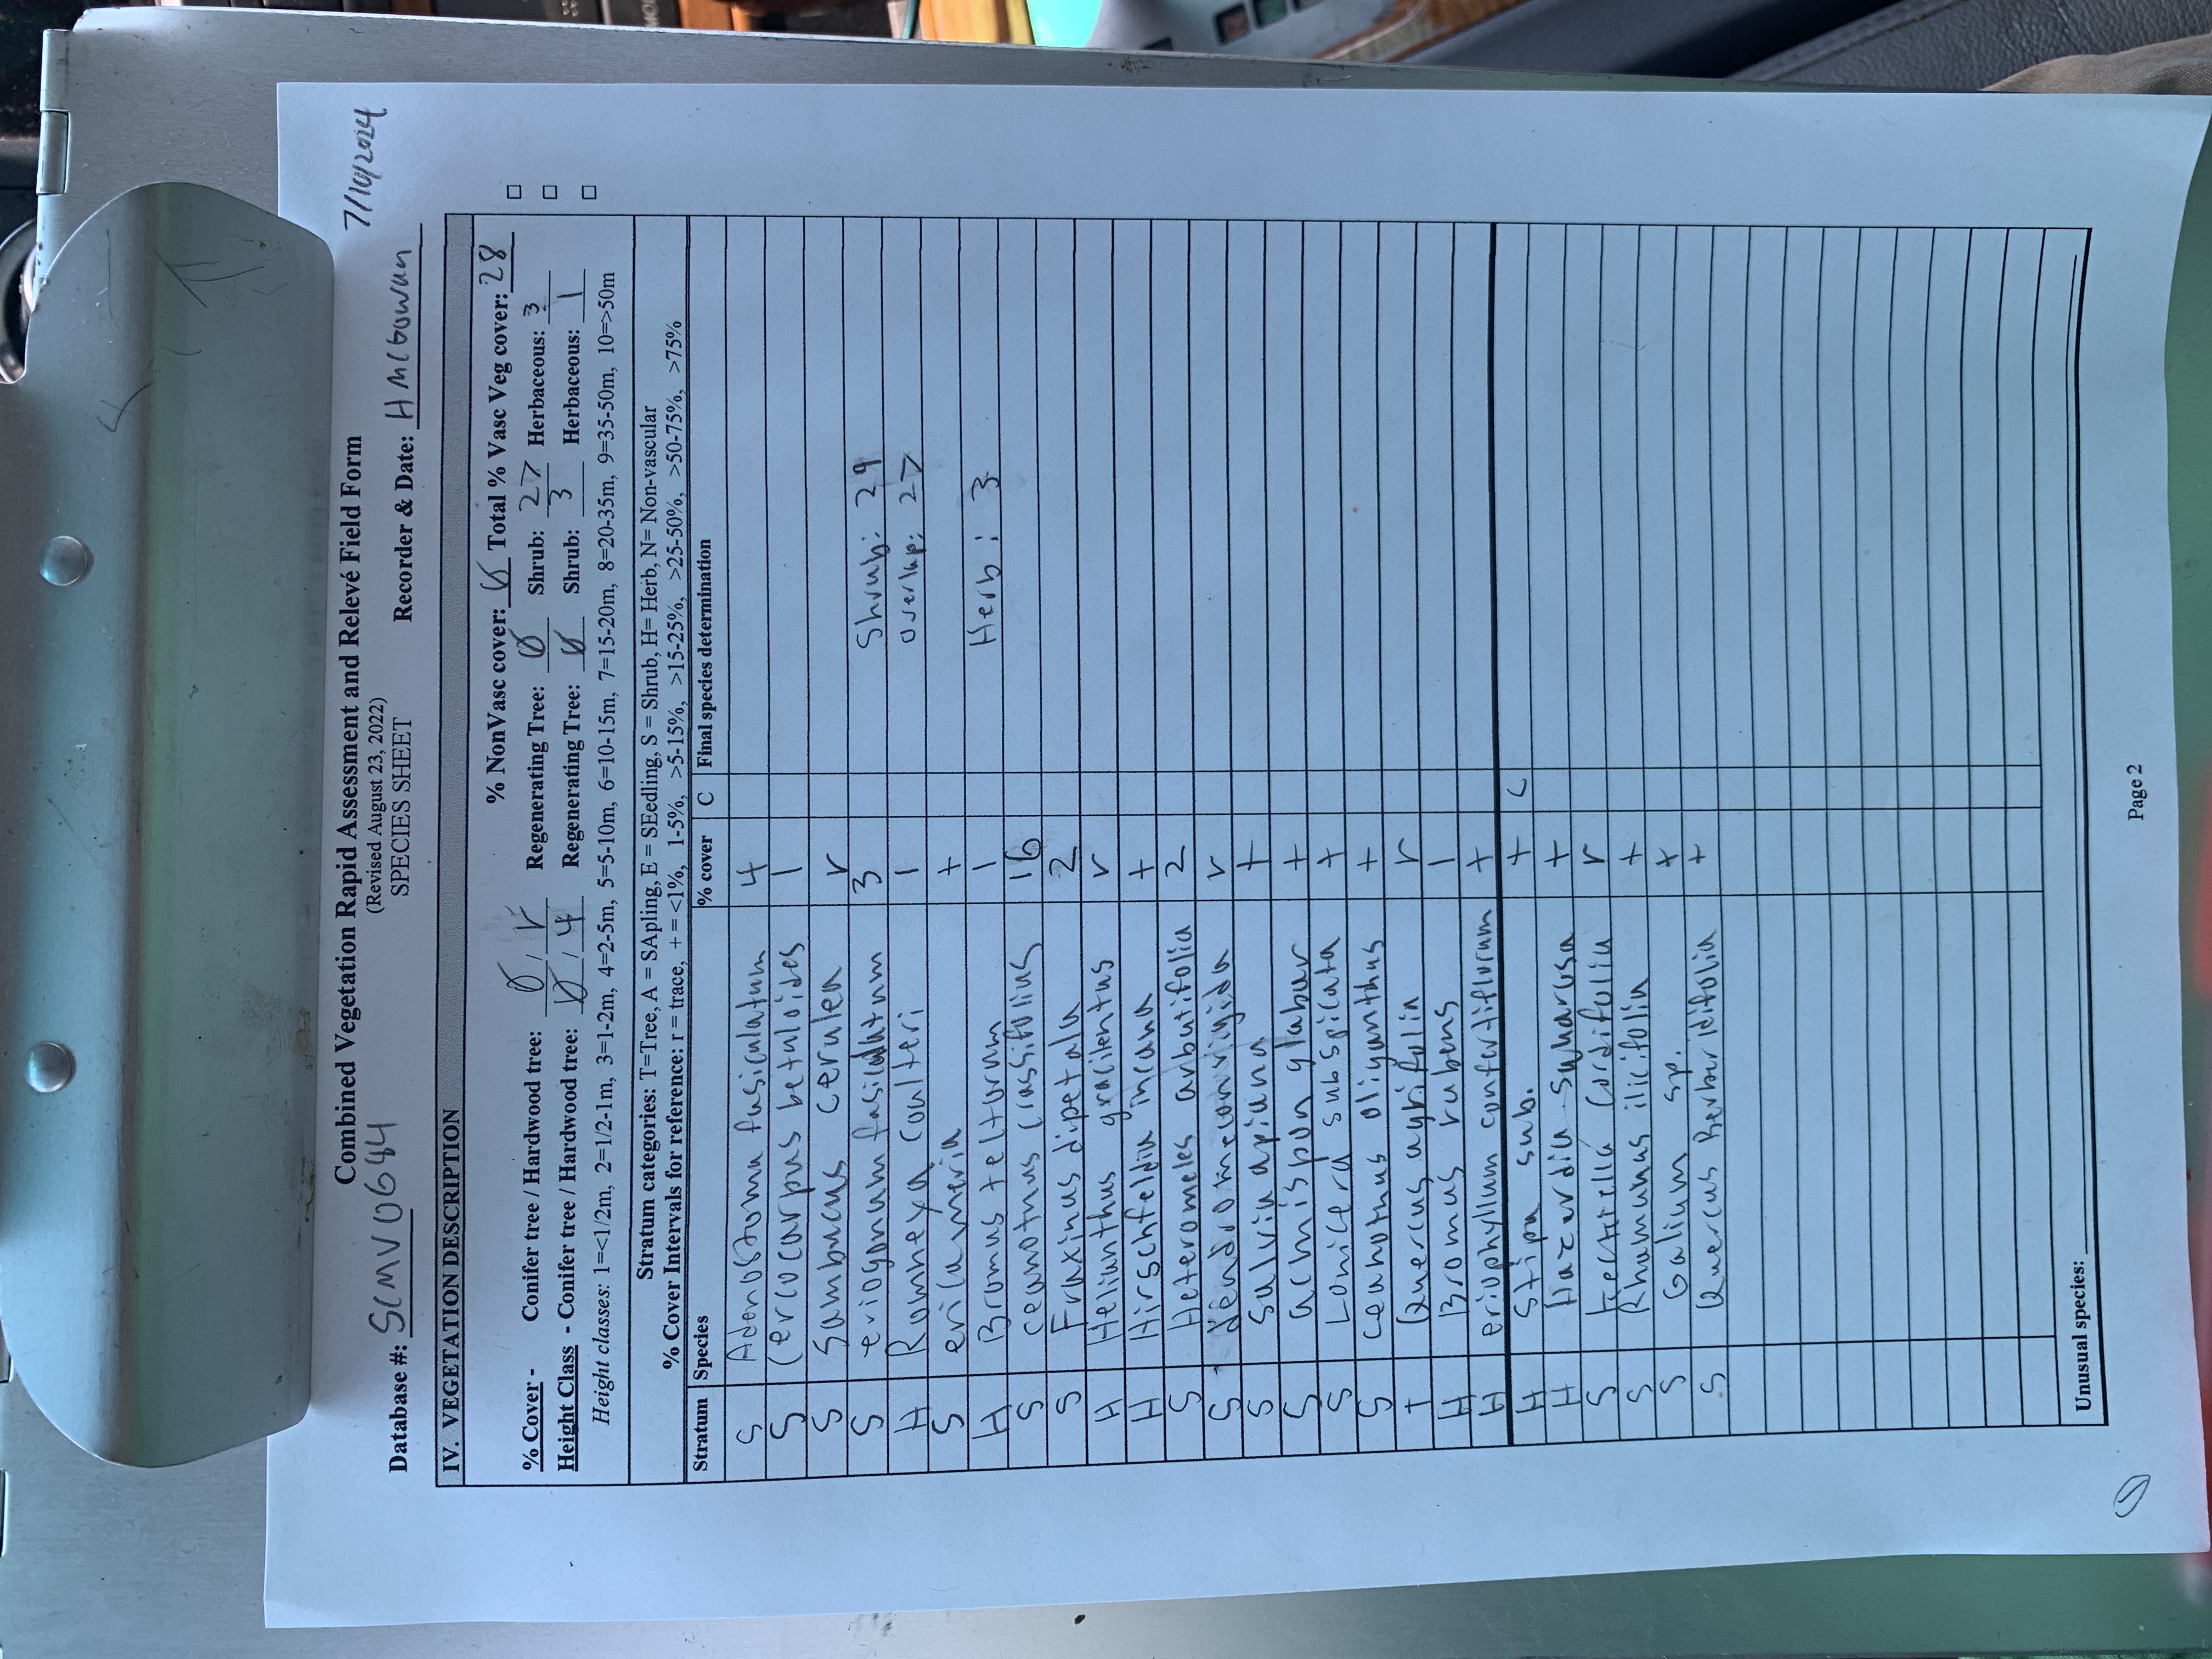 Combined Vegetation Rapid Assessment and Relevé Field Form
(Revised August 23, 2022)
SPECIES SHEET
7/10/2024
Database #: SCMV0644 Recorder & Date: H McGowan
IV. VEGETATION DESCRIPTION
% NonVasc cover: 0 Total % Vasc Veg cover: 28
% Cover - Conifer tree / Hardwood tree: 0 / r Regenerating Tree: 0 Shrub: 27 Herbaceous: 3
Height Class - Conifer tree / Hardwood tree: 0 / 4 Regenerating Tree: 0 Shrub: 3 Herbaceous: 1
Height classes: 1=<1/2m, 2=1/2-1m, 3=1-2m, 4=2-5m, 5=5-10m, 6=10-15m, 7=15-20m, 8=20-35m, 9=35-50m, 10=>50m
Stratum categories: T=Tree, A = SApling, E = SEedling, S = Shrub, H= Herb, N= Non-vascular
% Cover Intervals for reference: r = trace, + = <1%, 1-5%, >5-15%, >15-25%, >25-50%, >50-75%, >75%
Stratum Species % cover C Final species determination
S Adenostoma fasiculatum 4
S Cercocarpus betuloides 1
S Sambucus cerulea r
S eriogonum fasiculatum 3 Shrub: 29
H Romneya coulteri 1 overlap: 27
S ericameria +
H Bromus tectorum 1 Herb: 3
S ceanothus crassifolius 16
S Fraxinus dipetala 2
H Helianthus gracilentus r
H Hirschfeldia incana +
S Heteromeles arbutifolia 2
S dendromecon rigida r
S Salvia apiana +
S acmispon glabur +
S Lonicera subspicata +
S ceanothus oliganthus +
T Quercus agrifolia r
H Bromus rubens 1
H eriophyllum confertiflorum +
H Stipa sub. + C
H Hazardia squarosa +
S keckiella cordifolia r
S Rhamnus ilicifolia +
S Galium sp. +
S Quercus berberidifolia +
Unusual species:
Page 2